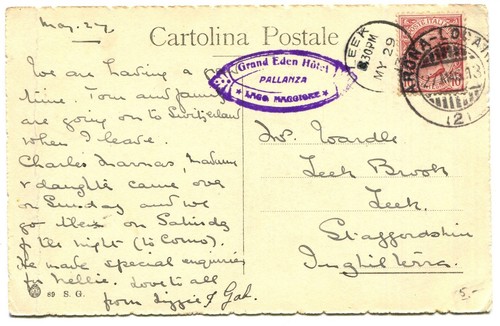 May. 27
Cartolina Postale
Grand Eden Hôtel
PALLANZA
LAGO MAGGIORE
LEEK
8.30PM
MY 29
ARONA-LOCARNO
(2)
POSTE ITALIANE
10
We are having a
time. Tom and
are going on to Switzerland
when I leave.
Charles Madame
& daughter came over
on Sunday and we
go there on Saturday
for the night (to Como).
He made special enquiries
for Nellie. Love to all
from Lizzie & Gab.
Mrs. Wardle
Leek Brook
Leek.
Staffordshire
Inghilterra.
89 S. G.
5-